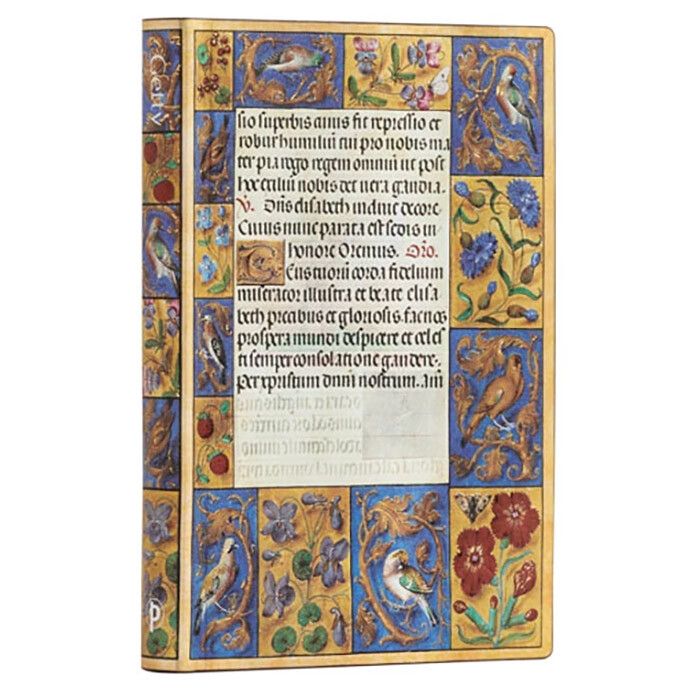 Getty
sio superbis anus fit repressio et
robur humiliū cui pro nobis ma
ter pia rogo regem omniū ut post
hoc exiliū nobis det vera gaudia.
V. Dn̄s elisabeth induie decore
Cuius nunc parata est sedis in
honore Oremus. Oro.
Tuorū corda fidelium
miserator illustra et beate elisa
beth precibus et gloriosis fac nos
prospera mundi despicere et celes
ti semper consolatione gaudere.
per xpristum dnm̄ nostrum. am̄
P